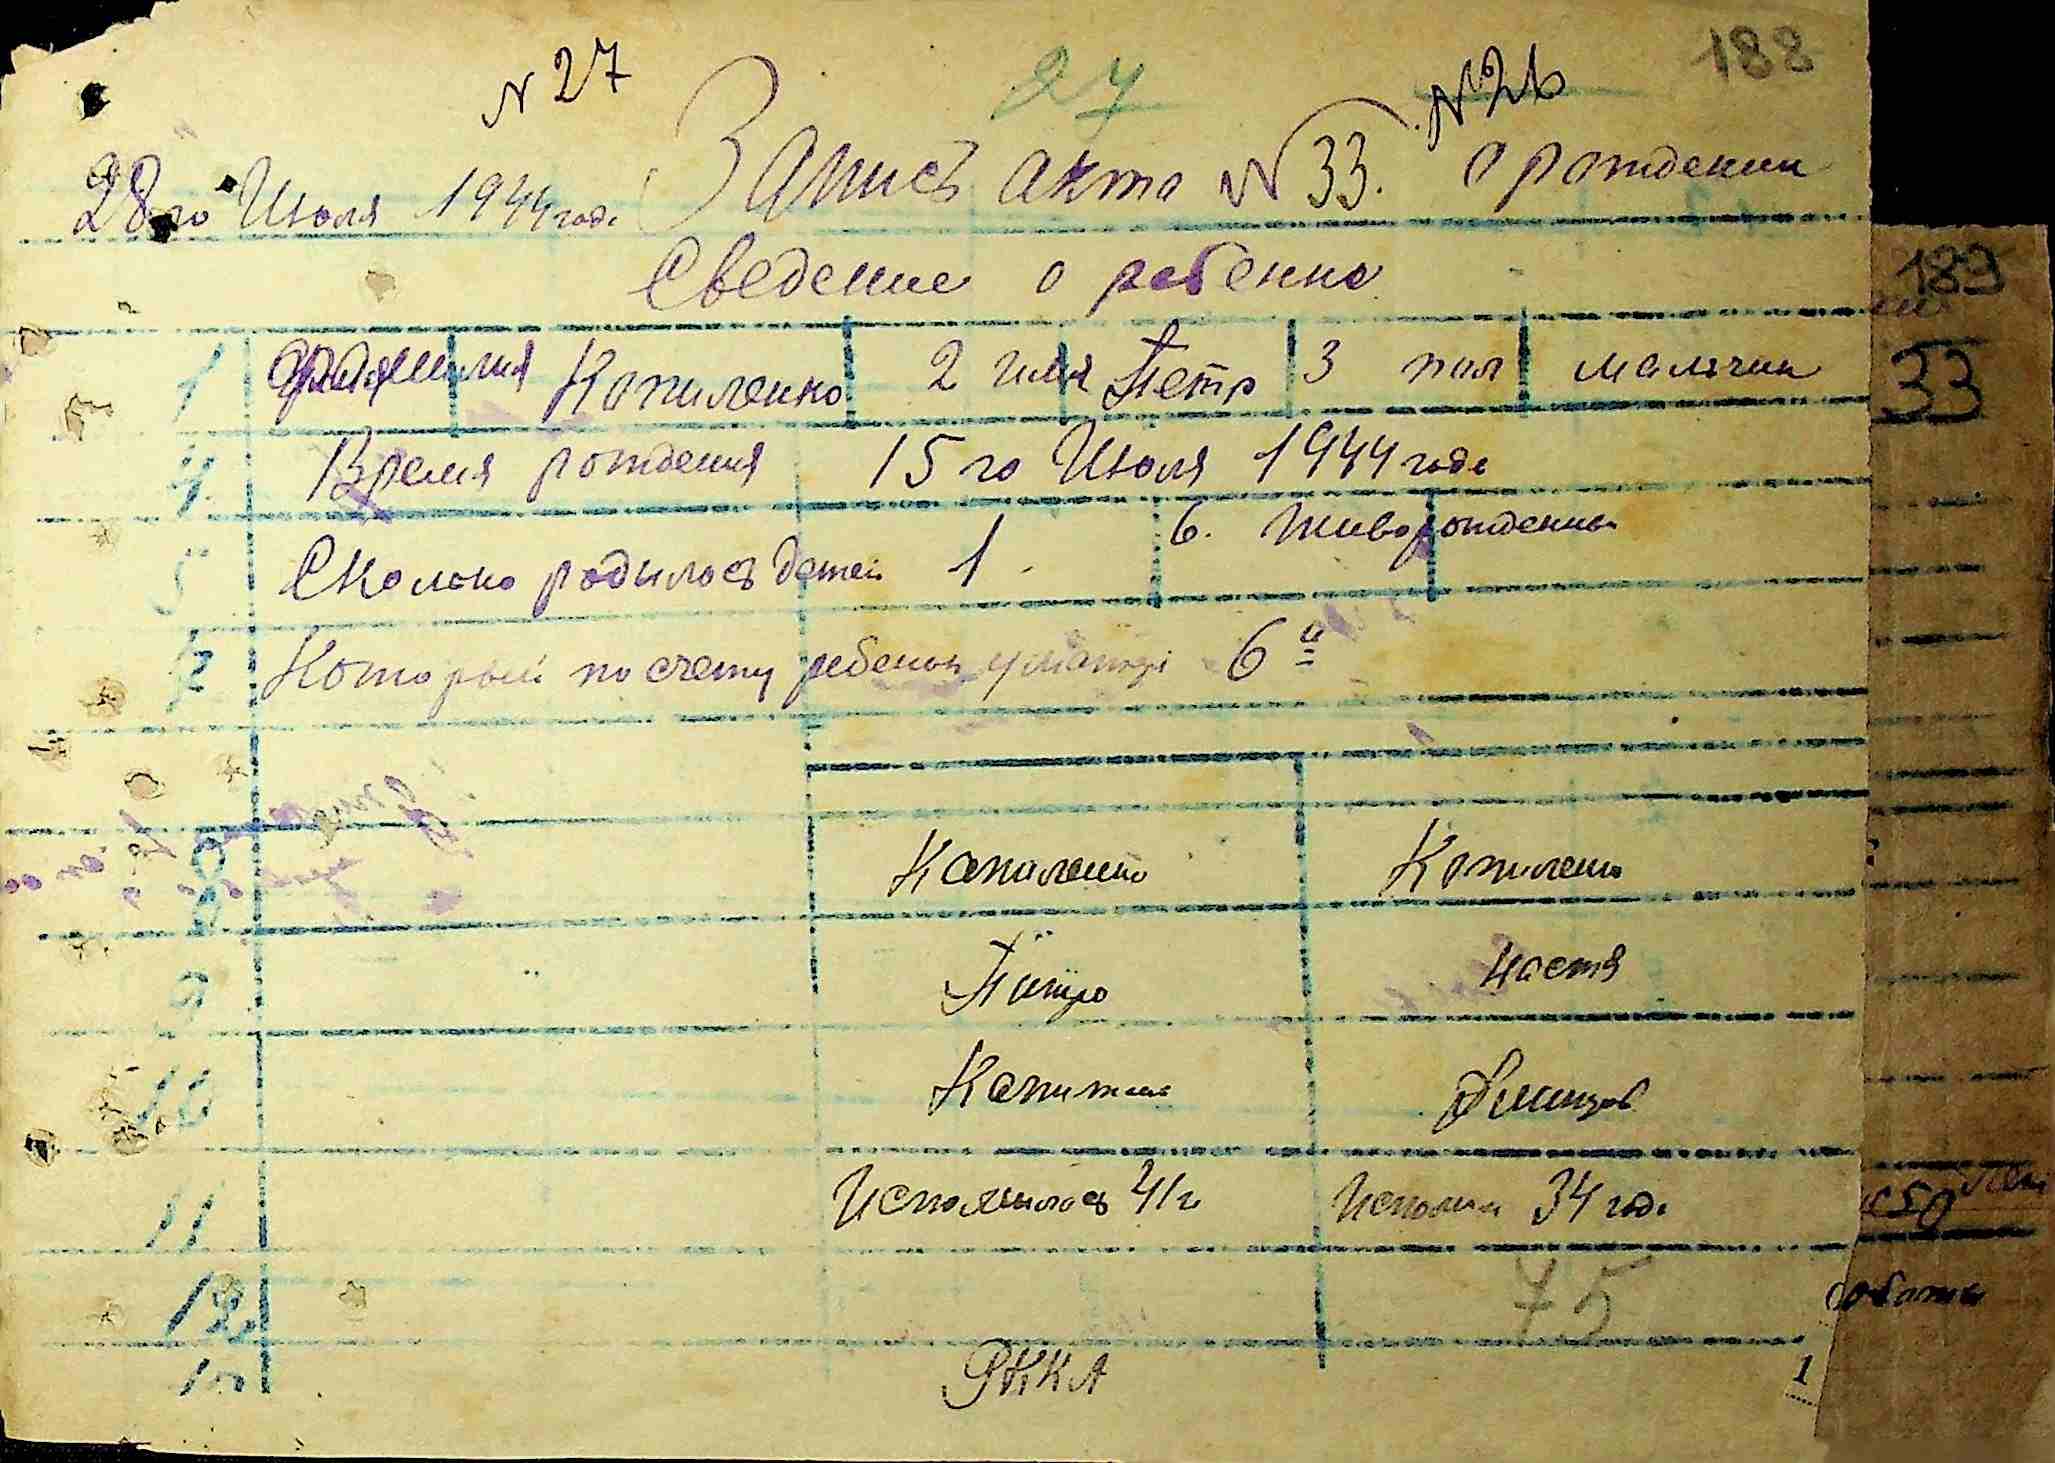 188
N 27 27 N 26
28 го Июля 1944 годс Запись акта N 33. о рождении
Сведение о ребенке
189
1 Фамилия Копиленко 2 имя Петр 3 пол мальчик
33
4 Время рождения 15 го Июля 1944 годс
5 Сколько родилось детей 1. 6. Живорожденны
7 Который по счету ребенок у матері 6й
8 Копиленко Копиленко
9 Питро Настя
10
11 Исполнилось 41 г Исполни 34 годс
50
12 75
РККА
1